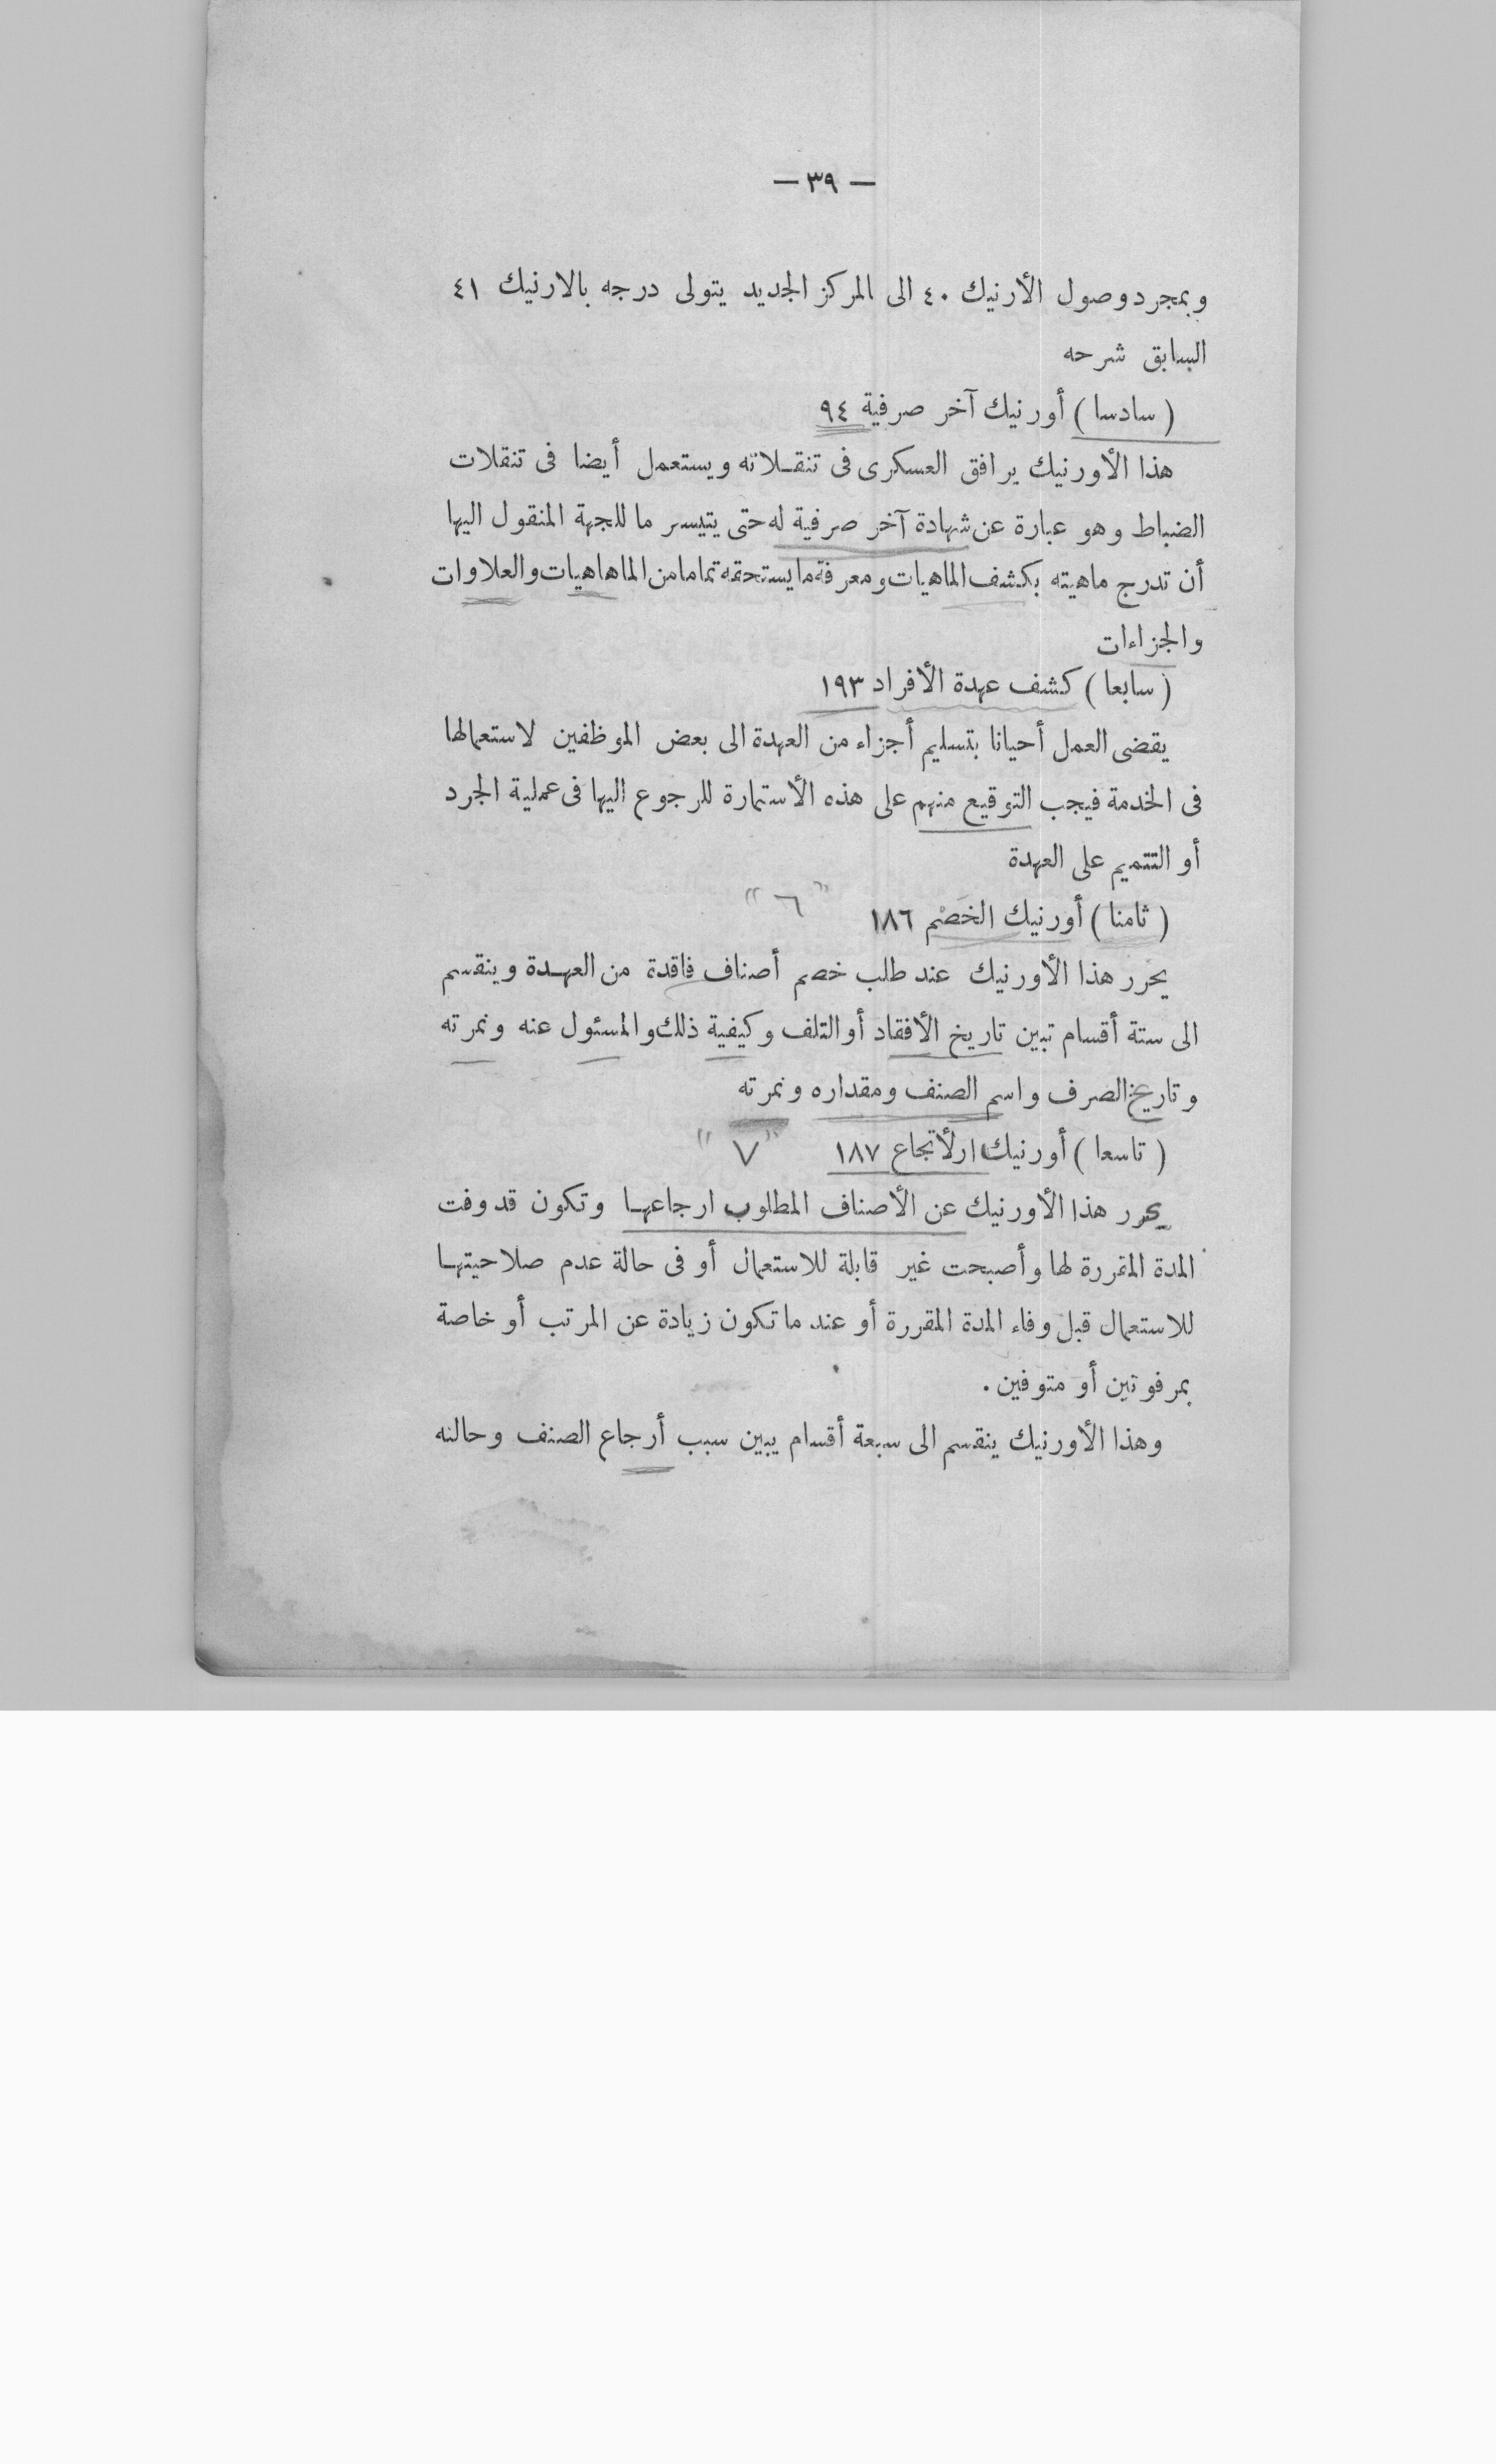 — ٣٩ —
وبمجرد وصول الأرنيك ٤٠ الى المركز الجديد يتولى درجه بالارنيك ٤١
السابق شرحه
( سادسا ) أورنيك آخر صرفية ٩٤
هذا الأورنيك يرافق العسكرى فى تنقلاته ويستعمل أيضا فى تنقلات
الضباط وهو عبارة عن شهادة آخر صرفية له حتى يتيسر ما للجهة المنقول اليها
أن تدرج ماهيته بكشف الماهيات ومعرفة ما يستحقه تماما من الماهاهيات والعلاوات
والجزاءات
( سابعا ) كشف عهدة الأفراد ١٩٣
يقضى العمل أحيانا بتسليم أجزاء من العهدة الى بعض الموظفين لاستعمالها
فى الخدمة فيجب التوقيع منهم على هذه الأستمارة للرجوع اليها فى عملية الجرد
أو التتميم على العهدة
( ثامنا ) أورنيك الخصم ١٨٦ " ٦ "
يحرر هذا الأورنيك عند طلب خصم أصناف فاقدة من العهدة وينقسم
الى ستة أقسام تبين تاريخ الأفقاد أو التلف وكيفية ذلك والمسئول عنه ونمرته
وتاريخ الصرف واسم الصنف ومقداره ونمرته
( تاسعا ) أورنيك ارلأتجاع ١٨٧ " ٧ "
يحرر هذا الأورنيك عن الأصناف المطلوب ارجاعها وتكون قد وفت
المدة المقررة لها وأصبحت غير قابلة للاستعمال أو فى حالة عدم صلاحيتها
للاستعمال قبل وفاء المدة المقررة أو عند ما تكون زيادة عن المرتب أو خاصة
بمرفوتين أو متوفين .
وهذا الأورنيك ينقسم الى سبعة أقسام يبين سبب أرجاع الصنف وحالته